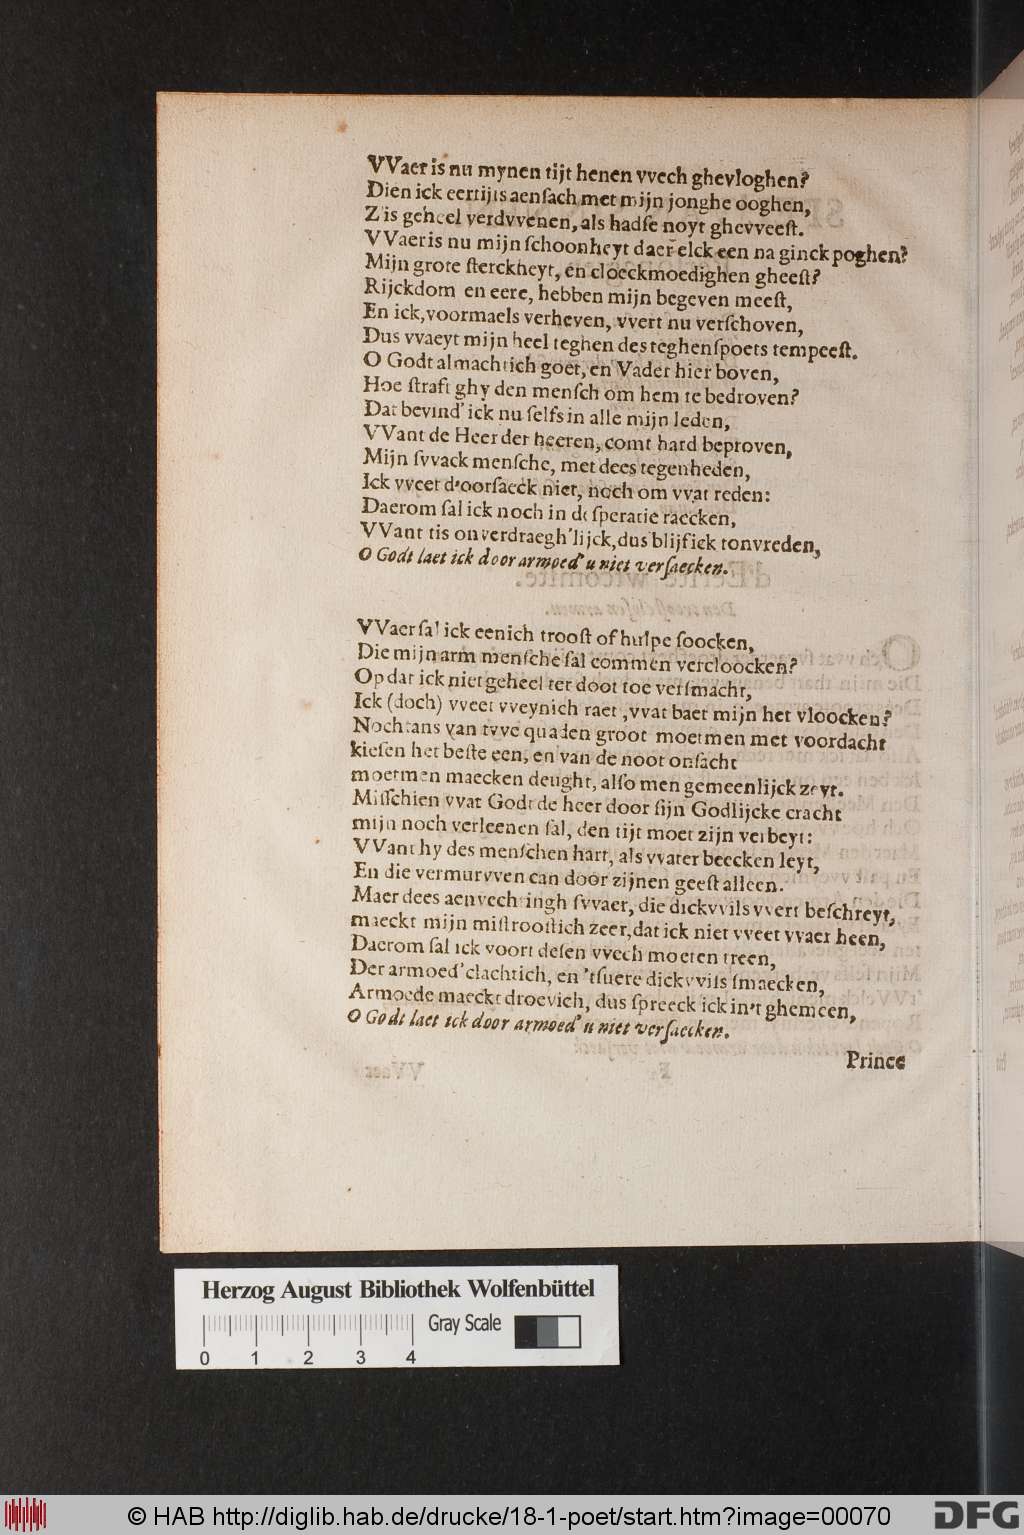 VVaer is nu mynen tijt henen vvech ghevloghen?
Dien ick eertijts aenſach met mijn jonghe ooghen,
Z'is geheel verdvvenen, als hadſe noyt ghevveeſt.
VVaer is nu mijn ſchoonheyt daer elck een na ginck poghen?
Mijn grote ſterckheyt, en cloeckmoedighen gheeſt?
Rijckdom en eere, hebben mijn begeven meeſt,
En ick, voormaels verheven, vvert nu verſchoven,
Dus vvaeyt mijn heel teghen des teghenſpoets tempeeſt.
O Godt almachtich goet, en Vader hier boven,
Hoe ſtraft ghy den menſch om hem te bedroven?
Dat bevind' ick nu ſelfs in alle mijn leden,
VVant de Heer der heeren, comt hard beproven,
Mijn ſvvack menſche, met dees tegenheden,
Ick vveet d'oorſaeck niet, noch om vvat reden:
Daerom ſal ick noch in deſperatie raecken,
VVant tis onverdraegh'lijck, dus blijf ick tonvreden,
O Godt laet ick door armoed' u niet verſaecken.
VVaer ſal ick eenich trooſt of hulpe ſoocken,
Die mijn arm menſche ſal commen vercloocken?
Op dat ick niet geheel ter doot toe verſmacht,
Ick (doch) vveet vveynich raet, vvat baet mijn het vloocken?
Nochtans van tvve quaden groot moetmen met voordacht
kieſen het beſte een, en van de noot onſacht
moetmen maecken deught, alſo men gemeenlijck zeyt.
Miſſchien vvat Godt de heer door ſijn Godlijcke cracht
mijn noch verleenen ſal, den tijt moet zijn verbeyt:
VVant hy des menſchen hart, als vvater beecken leyt,
En die vermurvven can door zijnen geeſt alleen.
Maer dees aenvechtingh ſvvaer, die dickvvils vvert beſchreyt,
maeckt mijn miſtrooſtich zeer, dat ick niet vveet vvaer heen,
Daerom ſal ick voort deſen vvech moeten treen,
Der armoed' clachtich, en 'tſuere dickvvils ſmaecken,
Armoede maeckt droevich, dus ſpreeck ick in't ghemeen,
O Godt laet ick door armoed' u niet verſaecken.
Prince
Herzog August Bibliothek Wolfenbüttel
Gray Scale
0 1 2 3 4
© HAB http://diglib.hab.de/drucke/18-1-poet/start.htm?image=00070
DFG